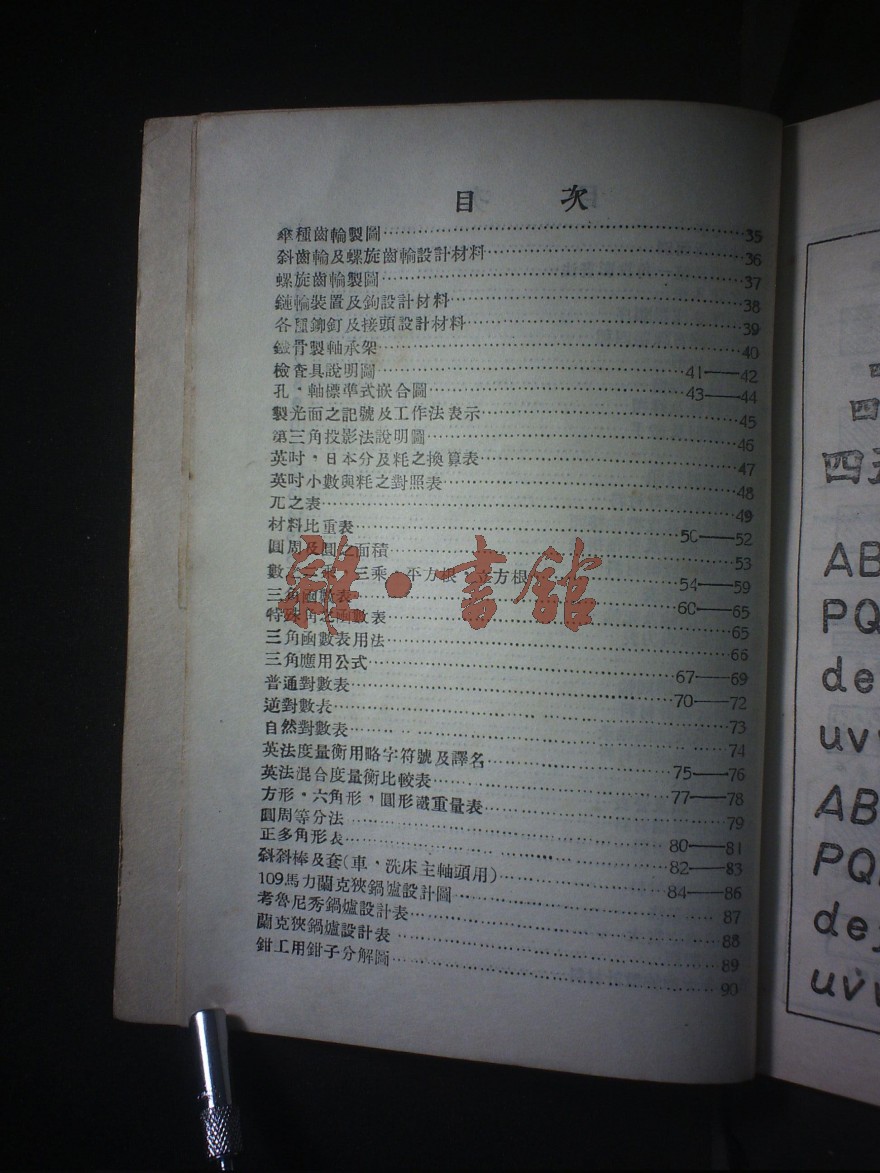 目 次
傘種齒輪製圖……35
斜齒輪及螺旋齒輪設計材料……36
螺旋齒輪製圖……37
鏈輪裝置及鉤設計材料……38
各種鉚釘及接頭設計材料……39
鐵骨製軸承架……40
檢查具說明圖……41——42
孔，軸標準式嵌合圖……43——44
製光面之記號及工作法表示……45
第三角投影法說明圖……46
英吋，日本分及粍之換算表……47
英吋小數與粍之對照表……48
兀之表……49
材料比重表……50——52
圓周及圓之面積……53
數 三乘，平方根，立方根……54——59
三角函數表……60——65
特殊角之函數表……65
三角函數表用法……66
三角應用公式……67——69
普通對數表……70——72
逆對數表……73
自然對數表……74
英法度量衡用略字符號及譯名……75——76
英法混合度量衡比較表……77——78
方形，六角形，圓形鐵重量表……79
圓周等分法……80——81
正多角形表……82——83
斜斜棒及套(車，洗床主軸頭用)……84——86
109馬力蘭克狹鍋爐設計圖……87
考魯尼秀鍋爐設計表……88
蘭克狹鍋爐設計表……89
鉗工用鉗子分解圖……90
雜·書館
四
四
四五
AB
PQ
de
uv
AB
PQ
de
uv